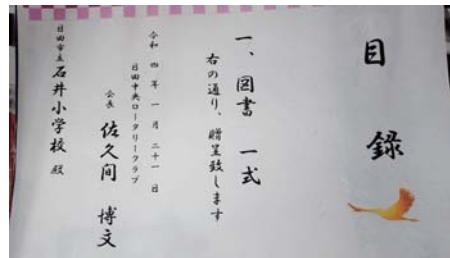 目録
一、図書 一式
右の通り、贈呈致します
令和四年一月二十一日
日田中央ロータリークラブ
会長 佐久間 博文
日田市立 石井小学校 殿